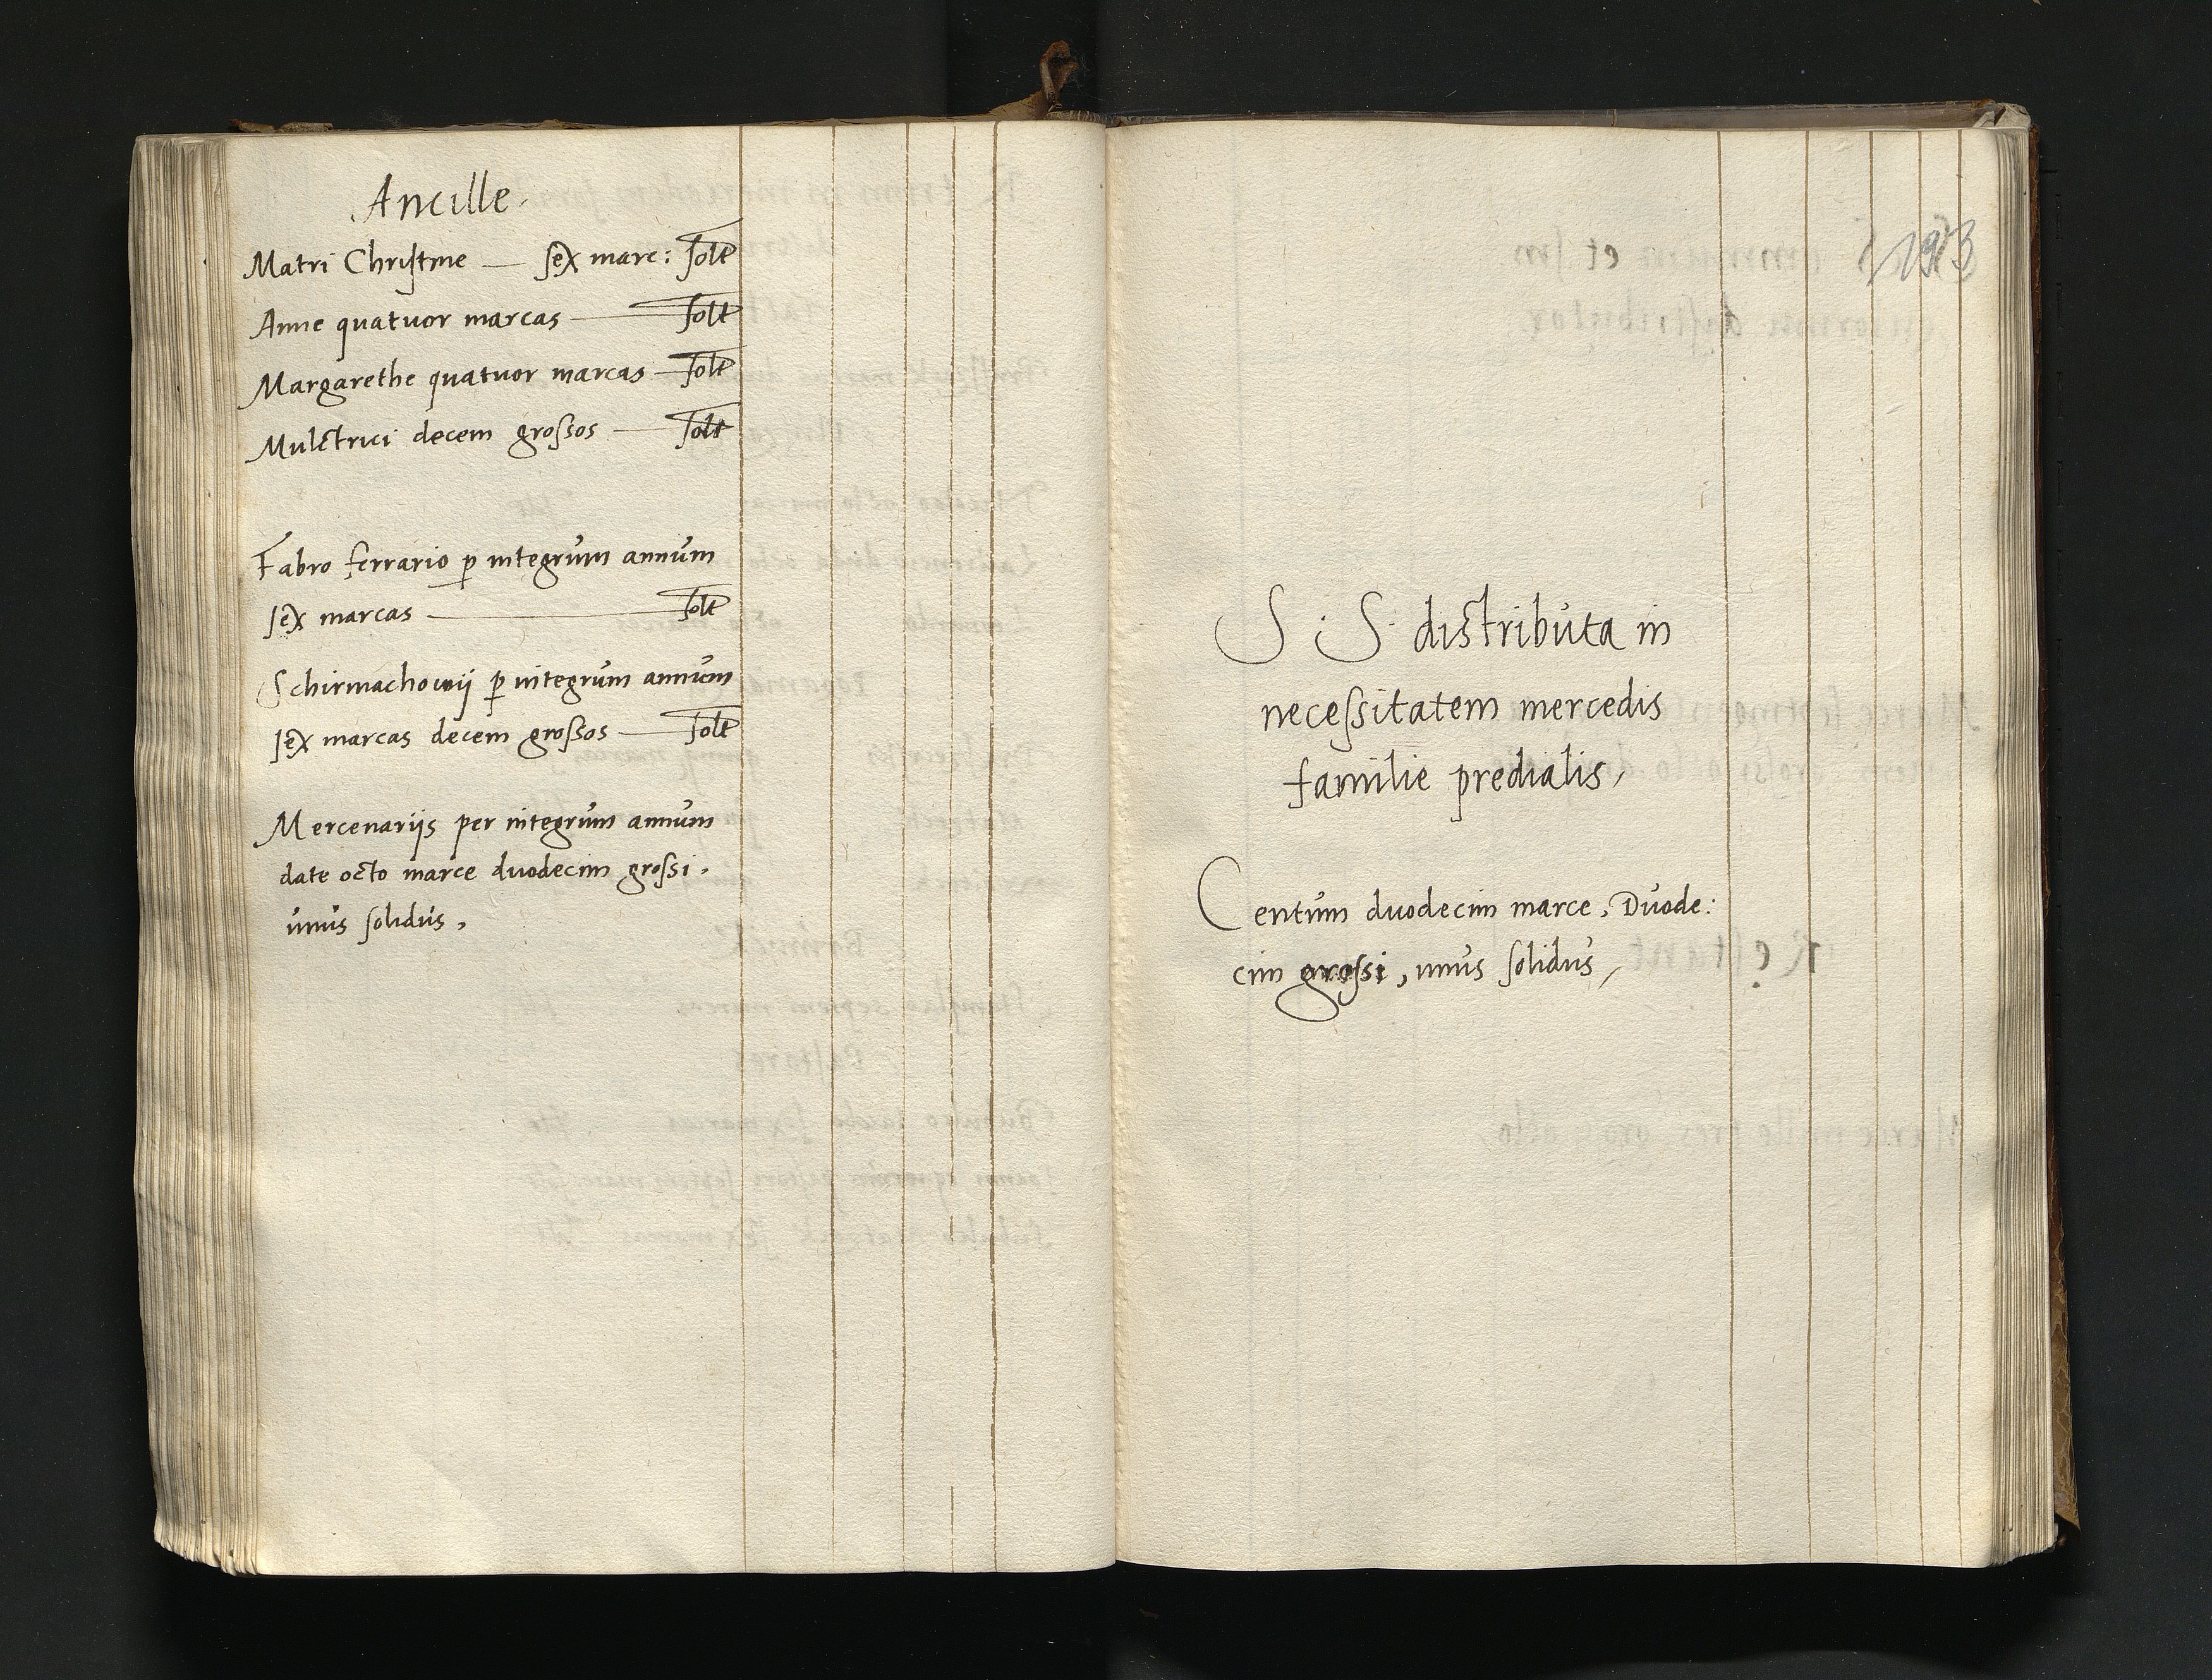 Ancille.
Matri Christine — sex marc: solt
Anne quatuor marcas — solt
Margarethe quatuor marcas — solt
Mulctrici decem grossos — solt
Fabro ferrario p integrum annum
sex marcas — solt
Schirmachowij p integrum annum
sex marcas decem grossos — solt
Mercenarijs per integrum annum
date octo marce duodecim grossi.
unus solidus,
S: S: distributa in
necessitatem mercedis
familie predialis,
Centum duodecim marce, Duode:
cim grossi, unus solidus,